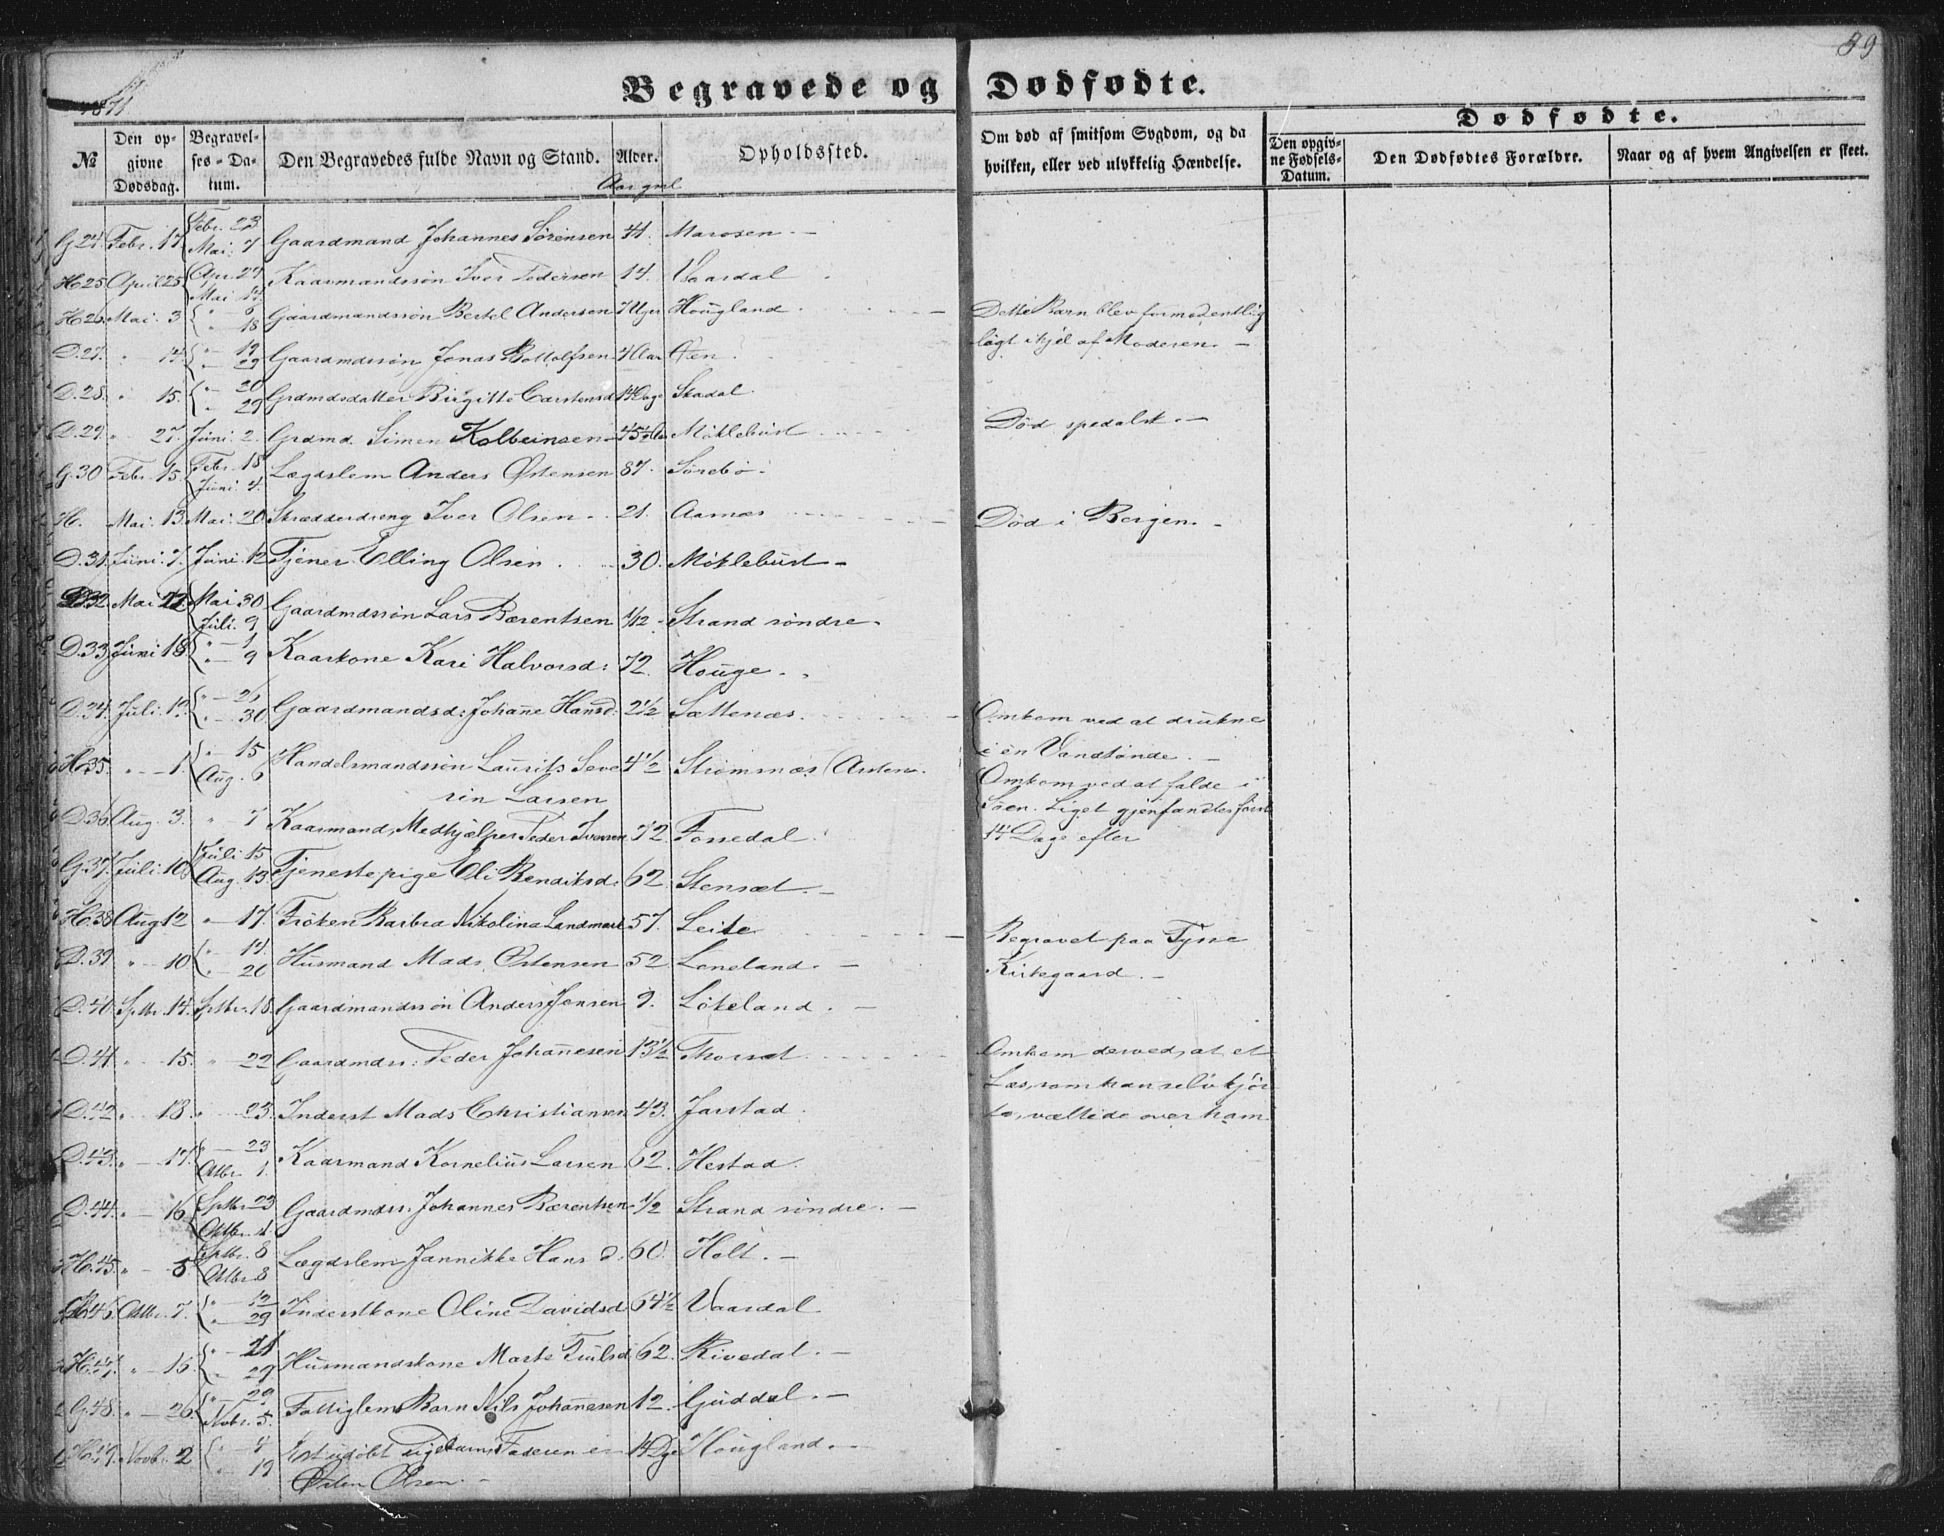 1871
39
Begravede og Dødfødte.
Dødfødte.
№
Den op-
givne
Dødsdag.
Begravel-
ses-Da-
tum.
Den Begravedes fulde Navn og Stand.
Alver.
Aar gml
Opholdssted.
Om død af smitsom Sygdom, og da
hvilken, eller ved ulykkelig Hændelse.
Den opgiv-
ne Fødsels-
Datum.
Den Dødfødtes Forældre.
Naar og af hvem Angivelsen er skeet.
G 24. Febr. 17. Febr. 23 Mai: 7 Gaardmand Johannes Sørensen 41. Marosen. —
H 25 April 25 Apr. 27 Mai 14 Kaarmandssön Iver Pedersen 14. Vaardal
H 26. Mai. 3 " 6 " 18 Gaardmandssön Bertel Andersen 7 Uger Hougland. Dette Barn blev formodentlig
lagt ihjel af Moderen. —
D. 27. " 14. " 19 " 29 Gaardmdssøn Jonas Botolfsen 4 Aar Øen.
D. 28. " 15. " 20 " 29 Grdmdsdatter Birgitte Carstensd 14 Dage Skadal.
D. 29. " 27. Juni. 2. Grdmd. Simen Kolbeinsen 45 Møklebust Død spedalsk. —
G. 30 Febr. 15. Febr. 18 Juni. 4. Lægdslem Anders Østensen 87. Sørebø.
H. Mai. 13. Mai. 20 Skrædderdreng Iver Olsen 21. Aarnæs Død i Bergen. —
D. 31. Juni. 7. Juni. 12 Tjener Elling Olsen 30. Møklebust —
D 32. Mai 22. Mai 30 Juli. 9 Gaardmdssön Lars Bærentsen 1/12 Strand söndre.
D. 33 Juni 18. " 1 " 9 Kaarkone Kari Halvorsd: 72. Houge.
D. 34. Juli. 19. " 21 " 30 Gaardmandsd: Johanne Hansd. 2 1/2 Sættenæs. Omkom ved at drukne
i en Vandtønde. —
H. 35. " 1. " 15 Aug. 6 Handelsmandssön Laurits Seve
rin Larsen 4 1/2 Strømnæs (Asken. Omkom ved at falde i
Søen. Liget gjenfandtes först
14 Dage efter
D. 36 Aug. 3. " 7 Kaarmand, Medhjælper Peder Iversen 72 Fossedal
G. 37. Juli. 10. Juli 15 Aug. 13. Tjenestepige Eli Bendiksd. 62. Stensæt. —
H. 38 Aug. 12 " 17. Fröken Barbra Nikolina Landmark 57. Leite Begravet paa Tysse
Kirkegaard. —
D. 39 " 10 " 14. " 20 Husmand Mads Østensen 52 Loneland. —
D. 40. Sptbr. 14. Sptbr. 18. Gaardmandssön Anders Jensen 9. Løkeland. —
D. 41 " 15. " 22 Gaardmdss: Peder Johannesen 13 1/2 Thorsæt Omkom derved, at et
Læs, som han selv kjör
te, væltede over ham.
D. 42 " 18 " 23. Inderst Mads Christiansen 43. Jarstad.
D. 43. " 17. " 23 Octbr. 1. Kaarmand Kornelius Larsen 62. Hestad.
D. 44. " 16 Sptbr. 23 Octbr. 1. Gaardmdss. Johannes Bærentsen 1/2 Strand söndre. —
H. 45. " 5 Sptbr. 8 Octbr. 8 Lægdslem Jannikke Hansd. 60. Holt. —
46. Octbr. 7. " 12 " 29 Inderstkone Oline Davidsd 64 1/2 Vaardal
H. 47. " 15. " 21 " 29 Husmandskone Marte Juulsd 62. Rivedal. —
G. 48. " 26. " 29 Novbr. 5. Fattiglem Barn Nils Johannesen 12. Guddal. —
H. 49. Novb. 2 " 4 " 19 Et udöbt Pigebarn, Faderen er
Østen Olsen. — 14 Dge Hougland. —